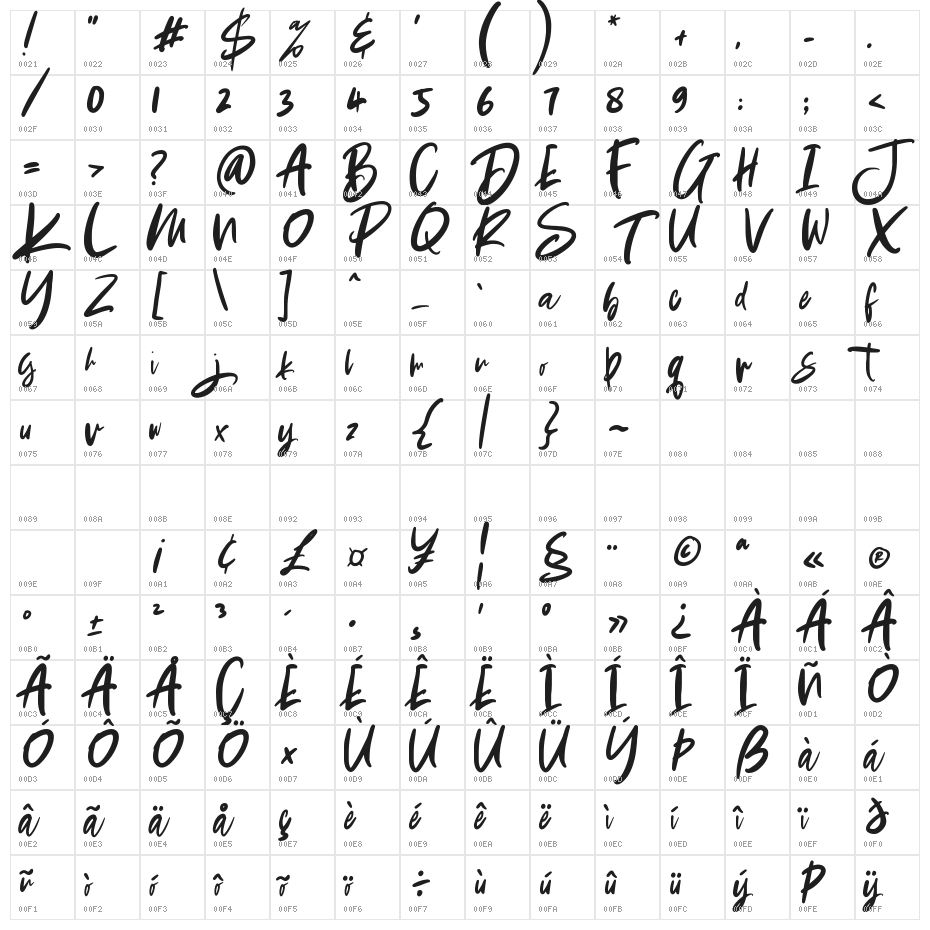 ! " # $ % & ' ( ) * + , - .
0021 0022 0023 0024 0025 0026 0027 0028 0029 002A 002B 002C 002D 002E
/ 0 1 2 3 4 5 6 7 8 9 : ; <
002F 0030 0031 0032 0033 0034 0035 0036 0037 0038 0039 003A 003B 003C
= > ? @ A B C D E F G H I J
003D 003E 003F 0040 0041 0042 0043 0044 0045 0046 0047 0048 0049 004A
K L M N O P Q R S T U V W X
004B 004C 004D 004E 004F 0050 0051 0052 0053 0054 0055 0056 0057 0058
Y Z [ \ ] ^ _ ` a b c d e f
0059 005A 005B 005C 005D 005E 005F 0060 0061 0062 0063 0064 0065 0066
g h i j k l m n o p q r s t
0067 0068 0069 006A 006B 006C 006D 006E 006F 0070 0071 0072 0073 0074
u v w x y z { | } ~
0075 0076 0077 0078 0079 007A 007B 007C 007D 007E 0080 0084 0085 0088
0089 008A 008B 008E 0092 0093 0094 0095 0096 0097 0098 0099 009A 009B
¡ ¢ £ ¤ ¥ ¦ § ¨ © ª « ®
009E 009F 00A1 00A2 00A3 00A4 00A5 00A6 00A7 00A8 00A9 00AA 00AB 00AE
° ± ² ³ ´ · ¸ ¹ º » ¿ À Á Â
00B0 00B1 00B2 00B3 00B4 00B7 00B8 00B9 00BA 00BB 00BF 00C0 00C1 00C2
Ã Ä Å Ç È É Ê Ë Ì Í Î Ï Ñ Ò
00C3 00C4 00C5 00C7 00C8 00C9 00CA 00CB 00CC 00CD 00CE 00CF 00D1 00D2
Ó Ô Õ Ö × Ù Ú Û Ü Ý Þ ß à á
00D3 00D4 00D5 00D6 00D7 00D9 00DA 00DB 00DC 00DD 00DE 00DF 00E0 00E1
â ã ä å ç è é ê ë ì í î ï ð
00E2 00E3 00E4 00E5 00E7 00E8 00E9 00EA 00EB 00EC 00ED 00EE 00EF 00F0
ñ ò ó ô õ ö ÷ ù ú û ü ý þ ÿ
00F1 00F2 00F3 00F4 00F5 00F6 00F7 00F9 00FA 00FB 00FC 00FD 00FE 00FF